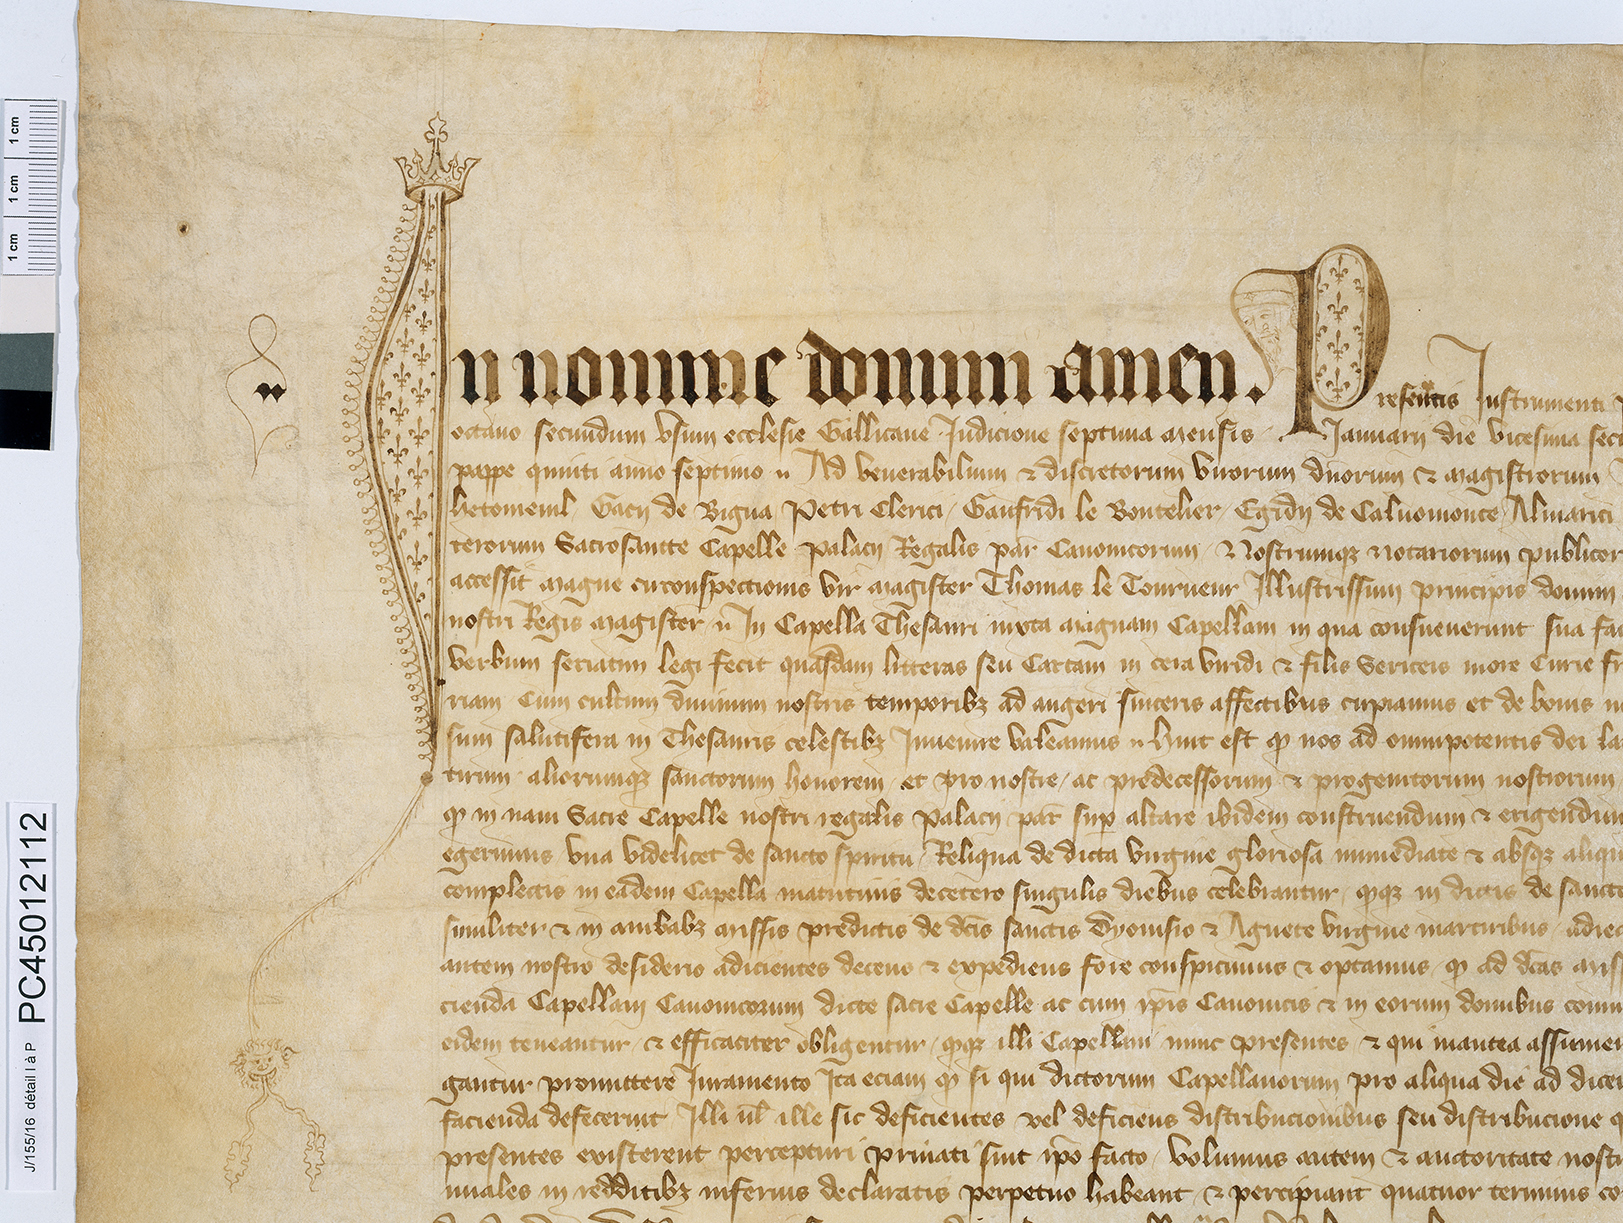 In nomine domini amen. Presentis Instrumenti
octavo secundum usum ecclesie Gallicane Indicione septima mensis Januarii die vicesima
pappe quinti anno septimo Ad venerabilium & discretorum virorum dnorum & magistrorum
Gaen de Bigua Petri Clerici Gaufridi le Boutelier Egidii de Caluomonte Almarici
Sacrosancte Capelle palacii Regalis par Canonicorum Nostrumque notariorum
accessit magne circonspectionis vir magister Thomas le Tourneur Illustrissimi principis domini
nostri Regis magister In Capella Thesauri iuxta magnam Capellam in qua consueuerunt sua
verbum seriatim legi fecit quasdam litteras seu Cartam in cera viridi & filis sericeis more Curie
riam Cum cultum diuinum nostris temporibz ad augeri sinceris affectibus cupiamus et de bonis
sum salutifera in Thesauris celestibz Inuenire valeamus Hinc est qp nos ad omnipotentis dei
tirum aliorumqz sanctorum honorem et pro nostre ac predecessorum & progenitorum nostrorum
qp in naui Sacre Capelle nostri regalis palacii par sup altare ibidem construendum & erigendum
egerimus una videlicet de sancto spiritu Reliqua de dicta virgine gloriosa immediate & absqz
complectis in eadem Capella matutinis decetero singulis diebus celebrantur qpqz in dictis de
similiter & in ambabz missis predictis de dcis sanctis Dyonisio & Agnete virgine martiribus
autem nostro desiderio adicientes decens & expediens fore conspicimus & optamus qp ad dcas
cienda Capellani Canonicorum dicte sacre Capelle ac cum ipis Canonicis & in eorum domibus
eidem teneantur & efficaciter obligentur qpqz illi Capellani nunc presentes & qui inantea
gantur promittere Iuramento Ita eciam qp si qui dictorum Capellanorum pro aliqua die ad
facienda defecerint Illi ul ille sic deficientes vel deficiens distribucionibus seu distribucione
presentes existerent percepturi priuati sint ipo facto volumus autem & auctoritate
nuales in redditibz inferius declaratis perpetuo habeant & percipiant quatuor terminis
1 cm
1 cm
1 cm
PC45012112
J/155/16 détail I à P